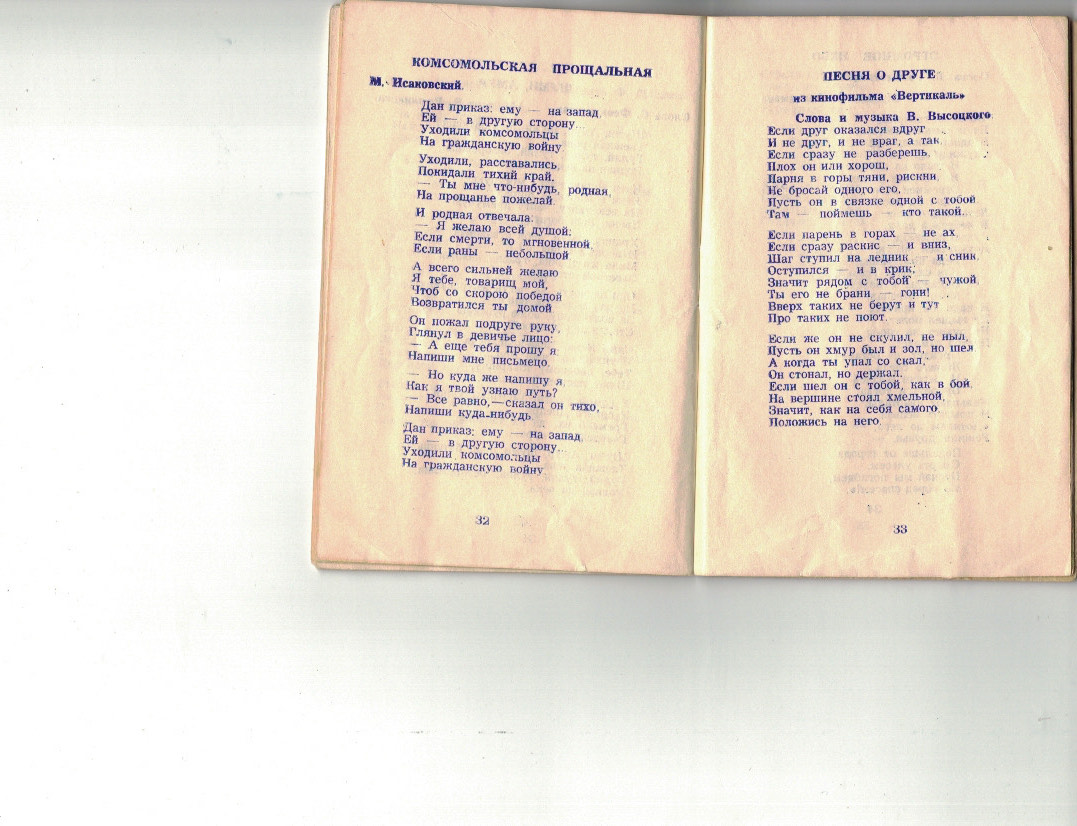 КОМСОМОЛЬСКАЯ ПРОЩАЛЬНАЯ
М. Исаковский.
Дан приказ: ему — на запад,
Ей — в другую сторону...
Уходили комсомольцы
На гражданскую войну.
Уходили, расставались,
Покидали тихий край.
— Ты мне что-нибудь, родная,
На прощанье пожелай.
И родная отвечала:
— Я желаю всей душой:
Если смерти, то мгновенной,
Если раны — небольшой.
А всего сильней желаю
Я тебе, товарищ мой,
Чтоб со скорою победой
Возвратился ты домой.
Он пожал подруге руку,
Глянул в девичье лицо:
— А еще тебя прошу я:
Напиши мне письмецо.
— Но куда же напишу я,
Как я твой узнаю путь?
— Все равно,—сказал он тихо,
Напиши куда-нибудь.
Дан приказ: ему — на запад,
Ей — в другую сторону...
Уходили комсомольцы
На гражданскую войну.
32
ПЕСНЯ О ДРУГЕ
из кинофильма «Вертикаль»
Слова и музыка В. Высоцкого.
Если друг оказался вдруг
И не друг, и не враг, а так
Если сразу не разберешь,
Плох он или хорош,
Парня в горы тяни, рискни.
Не бросай одного его,
Пусть он в связке одной с тобой
Там — поймешь — кто такой.
Если парень в горах — не ах.
Если сразу раскис — и вниз,
Шаг ступил на ледник — и сник.
Оступился — и в крик;
Значит рядом с тобой — чужой,
Ты его не брани — гони!
Вверх таких не берут и тут
Про таких не поют.
Если же он не скулил, не ныл,
Пусть он хмур был и зол, но шел
А когда ты упал со скал,
Он стонал, но держал.
Если шел он с тобой, как в бой,
На вершине стоял хмельной,
Значит, как на себя самого,
Положись на него.
33